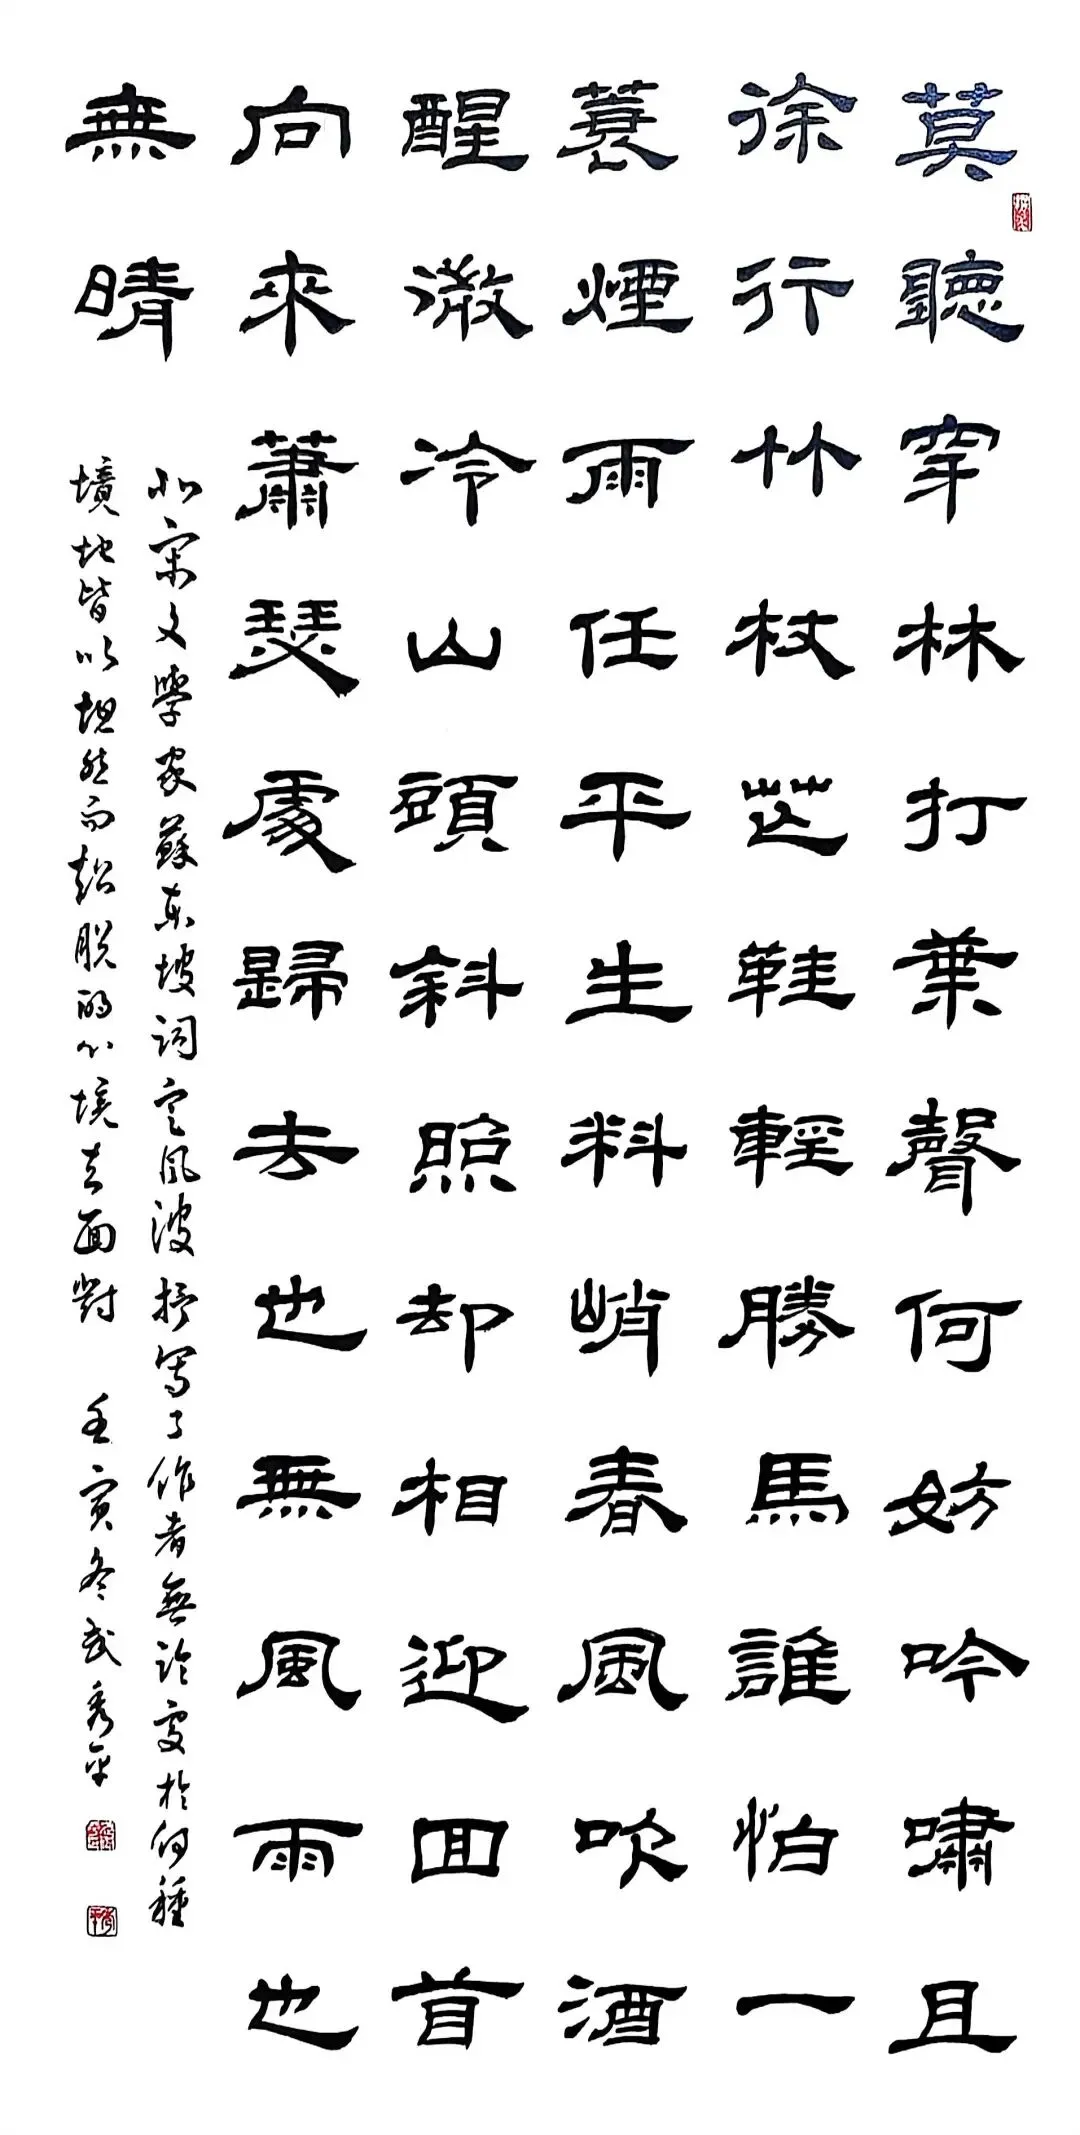 莫聽穿林打葉聲何妨吟嘯且
徐行竹杖芒鞋輕勝馬誰怕一
蓑煙雨任平生料峭春風吹酒
醒微冷山頭斜照却相迎回首
向來蕭瑟處歸去也無風雨也
無晴
北宋文學家蘇東坡詞定風波抒寫了作者無論處於何種
境地皆以坦然而超脫的心境去面對 壬寅冬武秀平